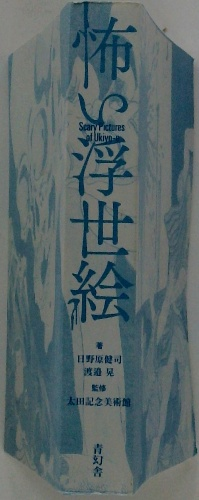 怖い浮世絵
Scary Pictures
of Ukiyo-e
著
日野原健司
渡邉晃
監修
太田記念美術館
青幻舎